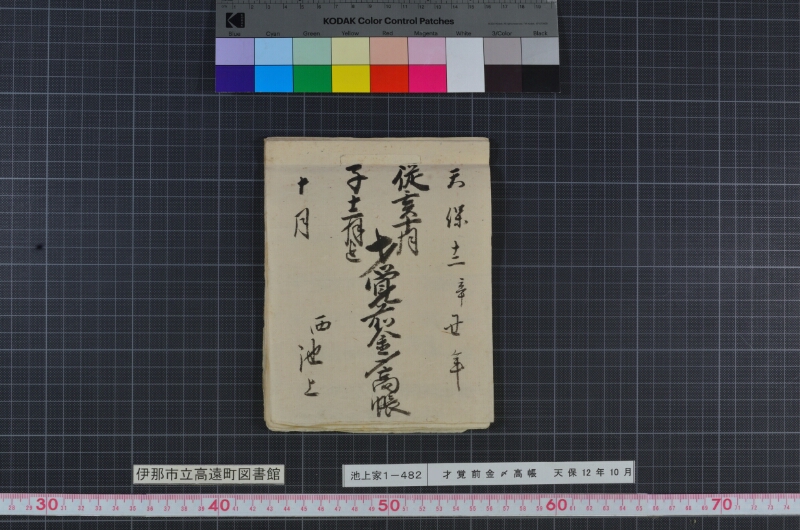 KODAK Color Control Patches
Blue Cyan Green Yellow Red Magenta White 3/Color Black
天保十二辛丑年
従亥十月
子十二月迄
才覚前金〆高帳
十月
西池上
伊那市立高遠町図書館
池上家1-482 才覚前金〆高帳 天保12年10月
30 40 50 60 70